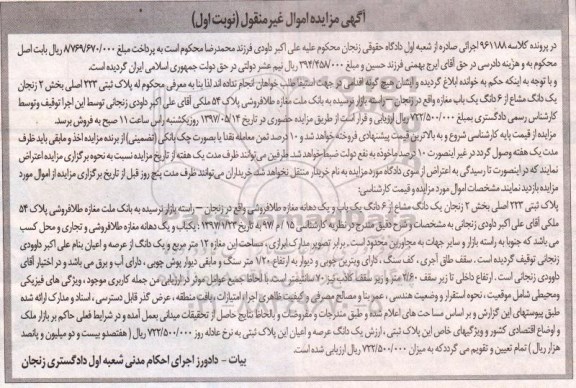 آگهی مزایده اموال غیرمنقول (نوبت اول)
در پرونده کلاسه ۹۶۱۱۸۸ اجرائی صادره از شعبه اول دادگاه حقوقی زنجان محکوم علیه علی اکبر داودی فرزند محمدرضا محکوم است به پرداخت مبلغ ۸/۷۶۹/۶۷۰/۰۰۰ ریال بابت اصل
محکوم به و هزینه دادرسی در حق آقای ایرج بهمنی فرزند حسین و مبلغ ۳۹۴/۲۵۸/۰۰۰ ریال نیم عشر دولتی در حق دولت جمهوری اسلامی ایران گردیده است.
و با توجه به اینکه حکم به خوانده ابلاغ گردیده و ایشان هیچ گونه اقدامی در جهت استیفا طلب خواهان انجام نداده اند لذا بنا به معرفی محکوم له پلاک ثبتی ۲۲۳ اصلی بخش ۲ زنجان
یک دانگ مشاع از ۶ دانگ یک باب مغازه واقع در زنجان – راسته بازار نرسیده به بانک ملت مغازه طلافروشی پلاک ۵۴ ملکی آقای علی اکبر داودی زنجانی توسط این اجرا توقیف و توسط
کارشناس رسمی دادگستری به مبلغ ۷۲۲/۵۰۰/۰۰۰ ریال ارزیابی و قرار است از طریق مزایده حضوری در تاریخ ۱۳۹۷/۰۵/۱۴ روز یکشنبه راس ساعت ۱۱ صبح به فروش برسد.
مزایده از قیمت پایه کارشناسی شروع و به بالاترین قیمت پیشنهادی فروخته خواهد شد و ۱۰ درصد ثمن معامله نقدا یا بصورت چک بانکی (تضمینی) از برنده مزایده اخذ و مابقی باید ظرف
مدت یک هفته وصول گردد در غیر اینصورت ۱۰ درصد ماخوذه به نفع دولت ضبط خواهد شد. طرفین می توانند ظرف مدت یک هفته از تاریخ مزایده نسبت به نحوه برگزاری مزایده اعتراض
نمایند که در اینصورت تا رسیدگی به اعتراض از سوی دادگاه مورد مزایده به نام خریدار منتقل نخواهد شد. خریداران می توانند ظرف مدت پنج روز قبل از تاریخ برگزاری مزایده از اموال مورد
مزایده بازدید نمایند. مشخصات اموال مورد مزایده و قیمت کارشناسی:
پلاک ثبتی ۲۲۳ اصلی بخش ۲ زنجان یک دانگ مشاع از ۶ دانگ یک باب و یک دهانه مغازه طلافروشی واقع در زنجان – راسته بازار نرسیده به بانک ملت مغازه طلافروشی پلاک ۵۴
ملکی آقای علی اکبر داودی زنجانی به مشخصات و شرح دقیق مندرج در نظریه کارشناسی ۱۵ / م ۹۷ به تاریخ ۱۳۹۷/۱/۲۳ یکباب و یک دهانه مغازه طلافروشی و تجاری و محل کسب
می باشد که جنوبا به راسته بازار و سایر جهات به مجاورین محدود است. برابر تصویر مدارک ابرازی، مساحت این مغازه ۱۲ متر مربع و یک دانگ از عرصه و اعیان بنام علی اکبر داوودی
زنجانی توقیف گردیده است. سقف طاق آجری، کف سنگ، دارای ویترین چوبی و دیوار به ارتفاع ۱/۲۰ متر سنگ و مابقی دیوار پوش چوبی، دارای آب و برق می باشد و در اختیار آقای
داوودی زنجانی است. ارتفاع داخلی تا زیر سقف ۲/۶۰ متر و زیر سقف کاذب ۷۰ سانتیمتر است. با لحاظ جمیع عوامل موثر در ارزیابی من جمله کاربری موجود، ویژگی های فیزیکی
ومحیطی شامل موقعیت، نحوه استقرار و وضعیت هندسی، عمر بنا و مصالح مصرفی و کیفیت ظاهری اجرا، امتیازات، بافت منطقه، عرض گذر قابل دسترسی، اسناد و مدارک ارائه شده
طبق پیوستهای این گزارش و بر اساس مساحت های اعلام شده و طبق مندرجات و مفروضات و بالحاظ نتایج حاصل از تحقیقات میدانی بعمل آمده و در شرایط فعلی حاکم بر بازار ملک
و اوضاع اقتصادی کشور و ویژگیهای خاص این پلاک ثبتی، ارزش یک دانگ عرصه و اعیان این پلاک ثبتی به نرخ عادله روز ۷۲۲/۵۰۰/۰۰۰ ریال ( هفتصدو بیست و دو میلیون و پانصد
هزار ریال ) تمام تعیین و تقویم می گردد که به میزان ۷۲۲/۵۰۰/۰۰۰ ریال ارزیابی شده است.
بیات - دادورز اجرای احکام مدنی شعبه اول دادگستری زنجان